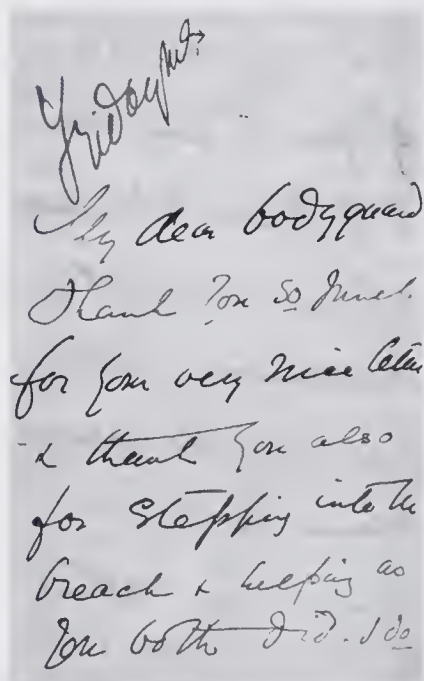 Friday nt.
My dear bodyguard
Thank you so much
for your very nice letter
& thank you also
for stepping into the
breach & helping as
you both did. I do